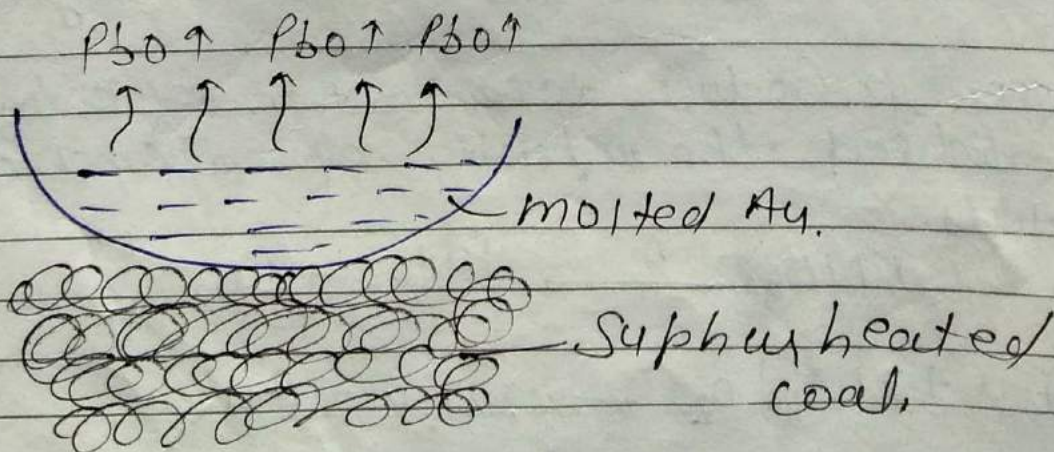 PbO↑ PbO↑ PbO↑
molted Au.
Suphur heated
coal.